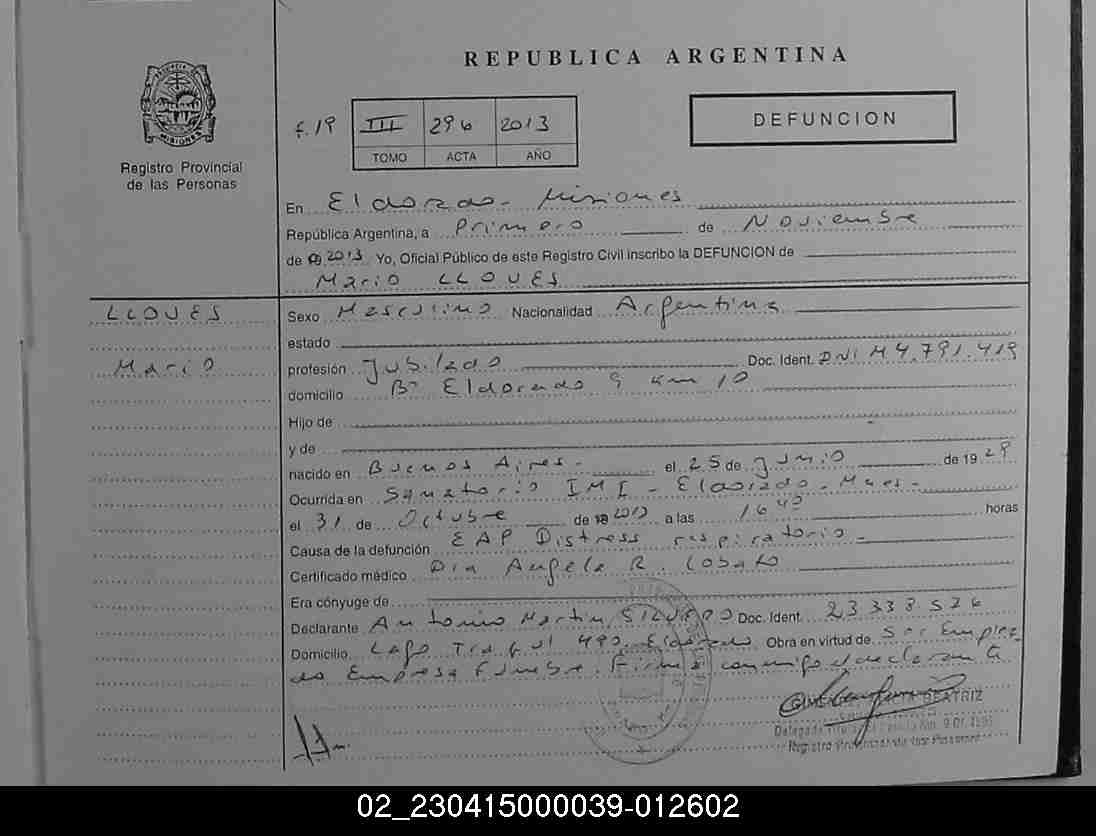 REPUBLICA ARGENTINA
PROVINCIA DE MISIONES
Registro Provincial
de las Personas
f. 19
III 296 2013
TOMO ACTA AÑO
DEFUNCION
En Eldorado - Misiones
República Argentina, a Primero de Noviembre
de 2013 Yo, Oficial Público de este Registro Civil inscribo la DEFUNCION de
Mario LLOVES
LLOVES
Mario
Sexo Masculino Nacionalidad Argentina
estado
profesión Jubilado Doc. Ident. DNI M 4.791.419
domicilio B° Eldorado 9 km 10
Hijo de
y de
nacido en Buenos Aires - el 25 de Junio de 19 29
Ocurrida en Sanatorio IMI - Eldorado - Mnes -
el 31 de Octubre de 2013 a las 16 40 horas
Causa de la defunción EAP Distress respiratorio -
Certificado médico Dra Angela R. Lobato
Era cónyuge de
Declarante Antonio Martin SILVERO Doc. Ident. 23338526
Domicilio Lago 490, Eldorado Obra en virtud de Ser Emplea
do Empresa Funebre. Firma conmigo el declarante
BEATRIZ
Registro Provincial de las Personas
02_230415000039-012602